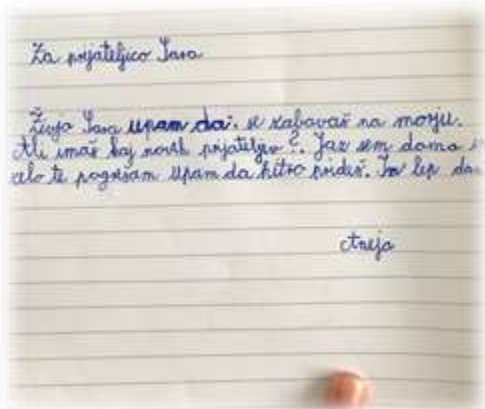 Za prijateljico Sara
Živjo Sara upam da. se zabavaš na morju.
Ali imaš kaj novih prijateljev?. Jaz sem doma i
elo te pogrešam upam da hitro prideš. Im lep da
Aneja